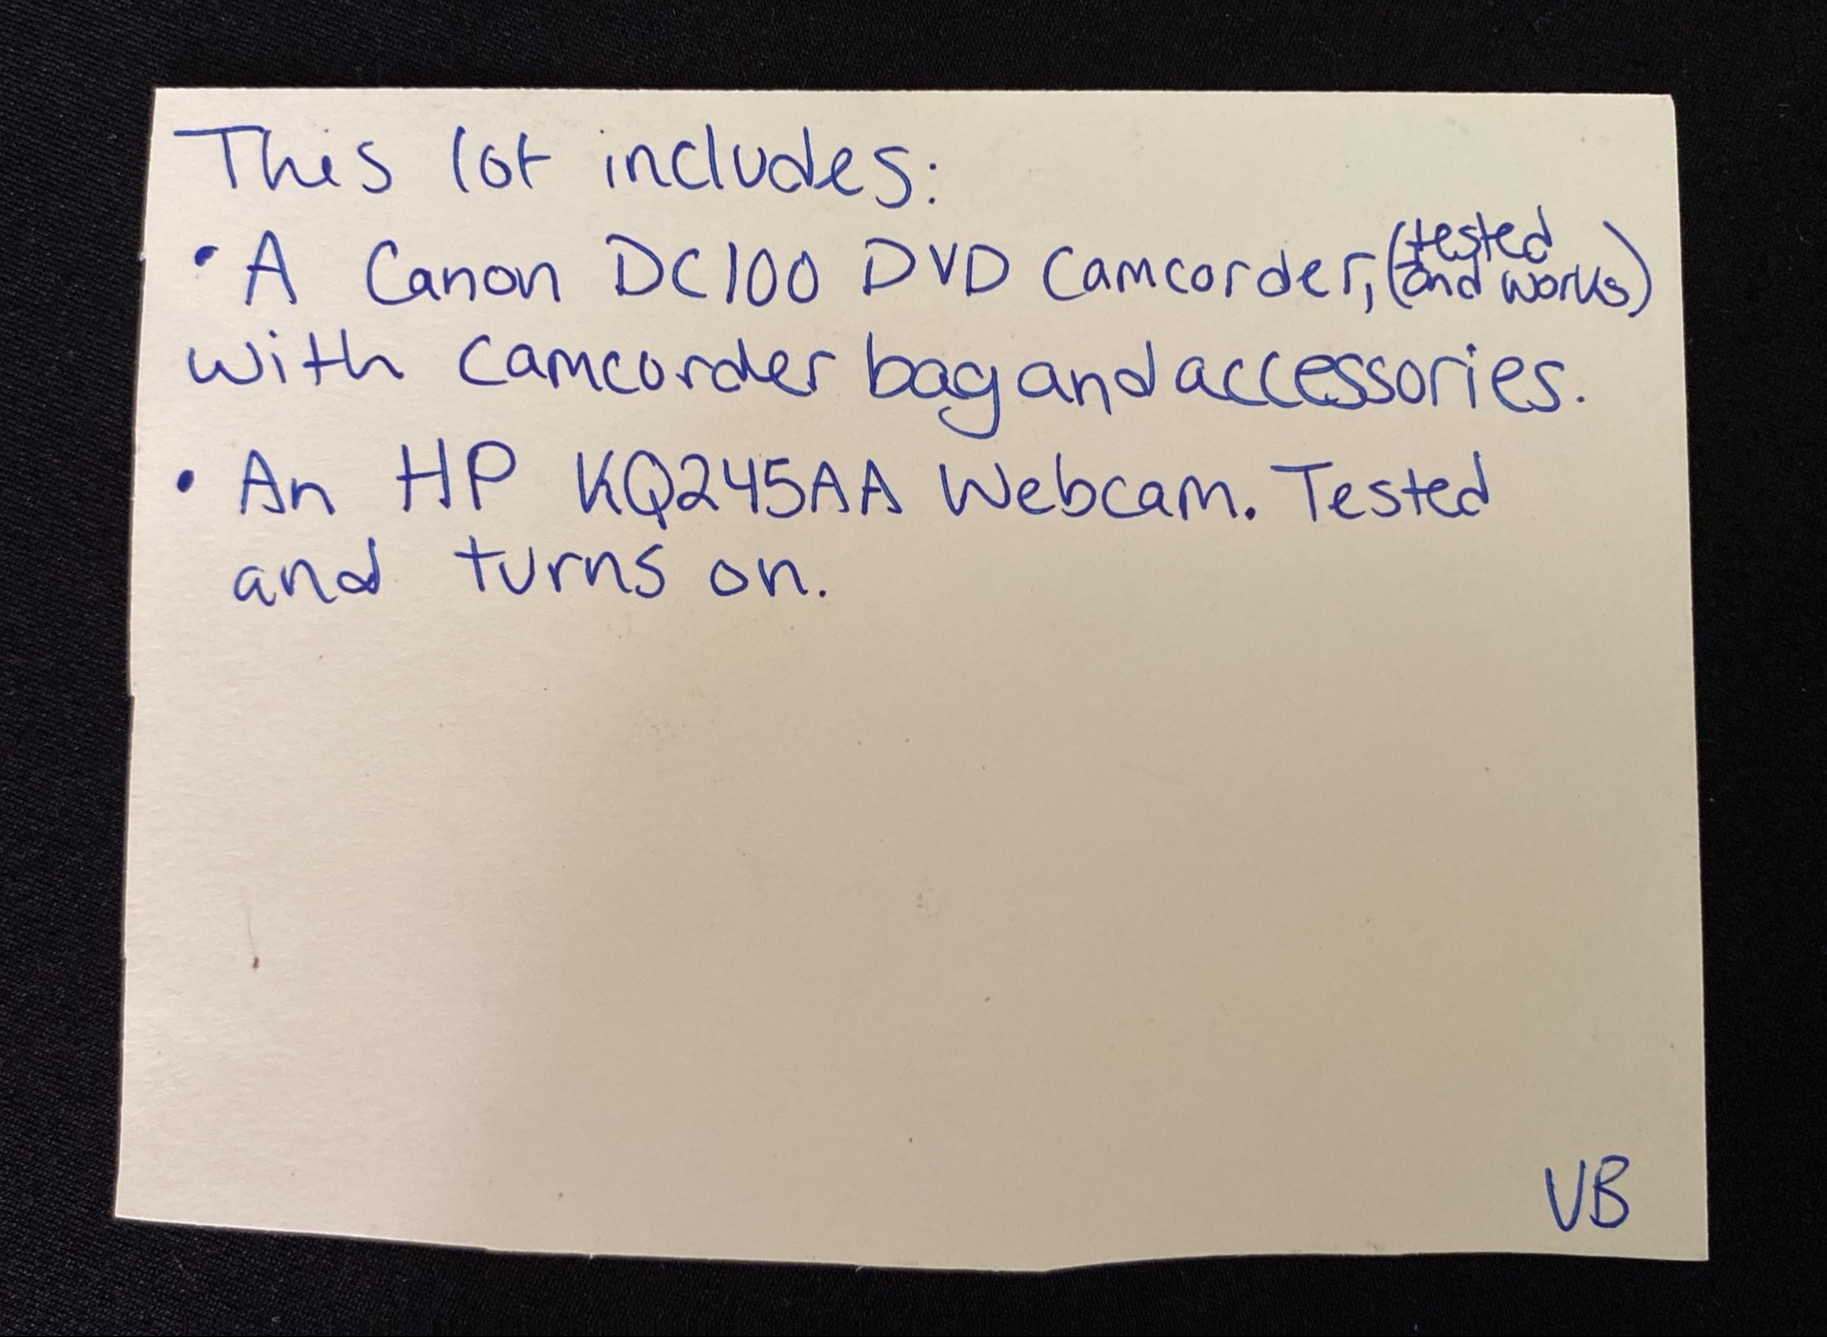 This lot includes:
• A Canon DC100 DVD Camcorder, (tested and works)
with camcorder bag and accessories.
• An HP KQ245AA Webcam. Tested
and turns on.
VB